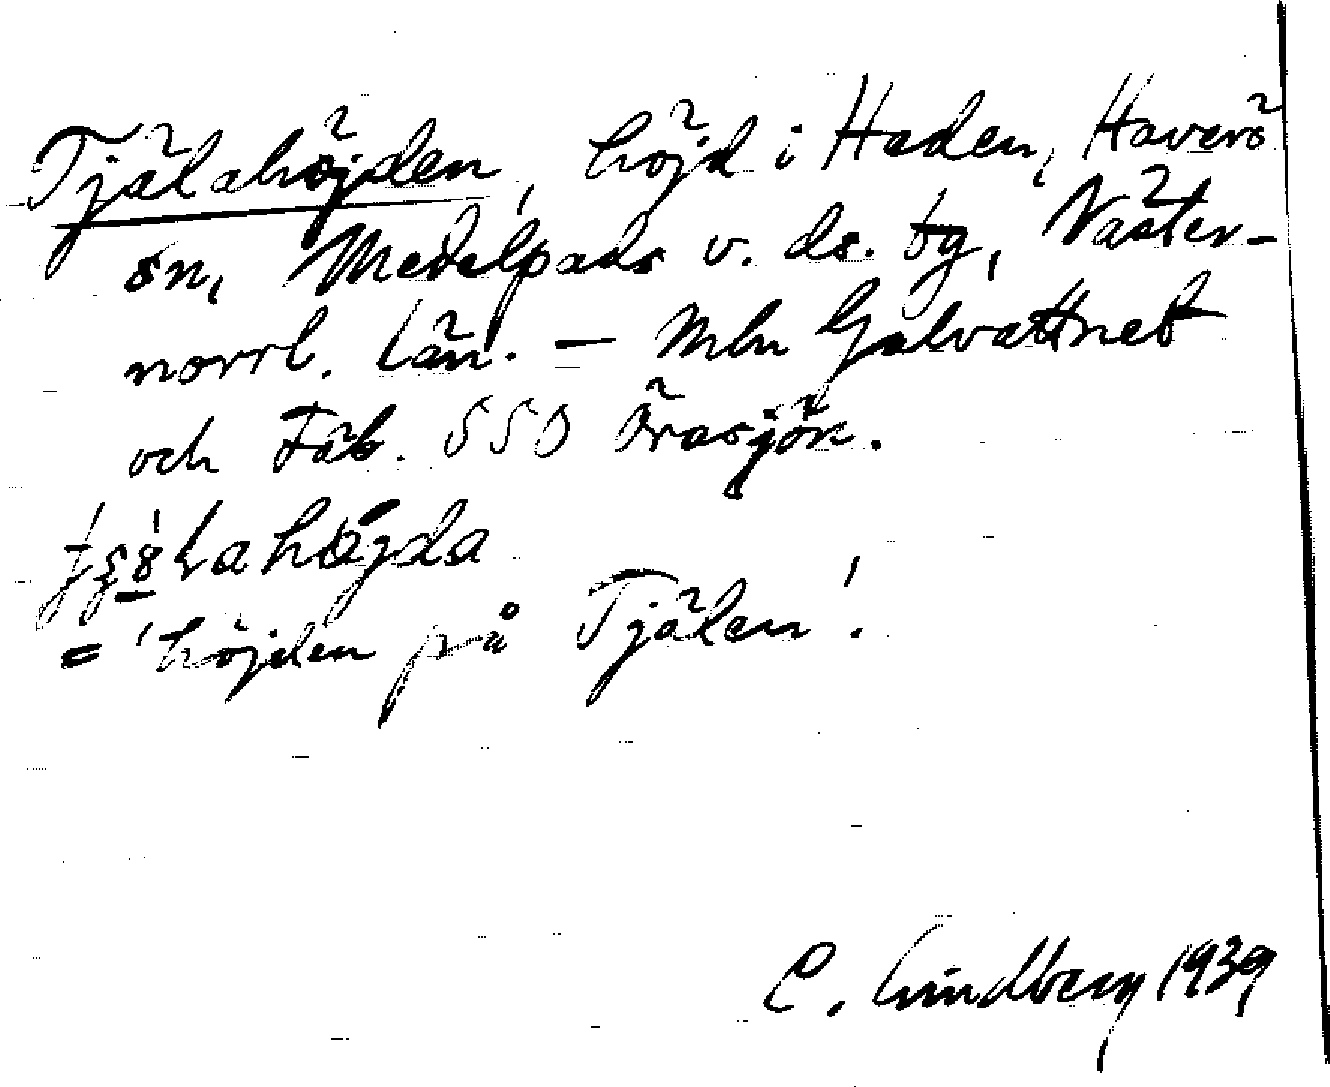 Tjälahöjden, höjd i Haden, Haverö
sn, Medelpads v. ds. tg, Väster-
norrl. län. – Mln Galvattnet
och Fäb. 550 Örasjön.
höjda
= 'höjden på Tjälen'.
C. Lindberg 1939